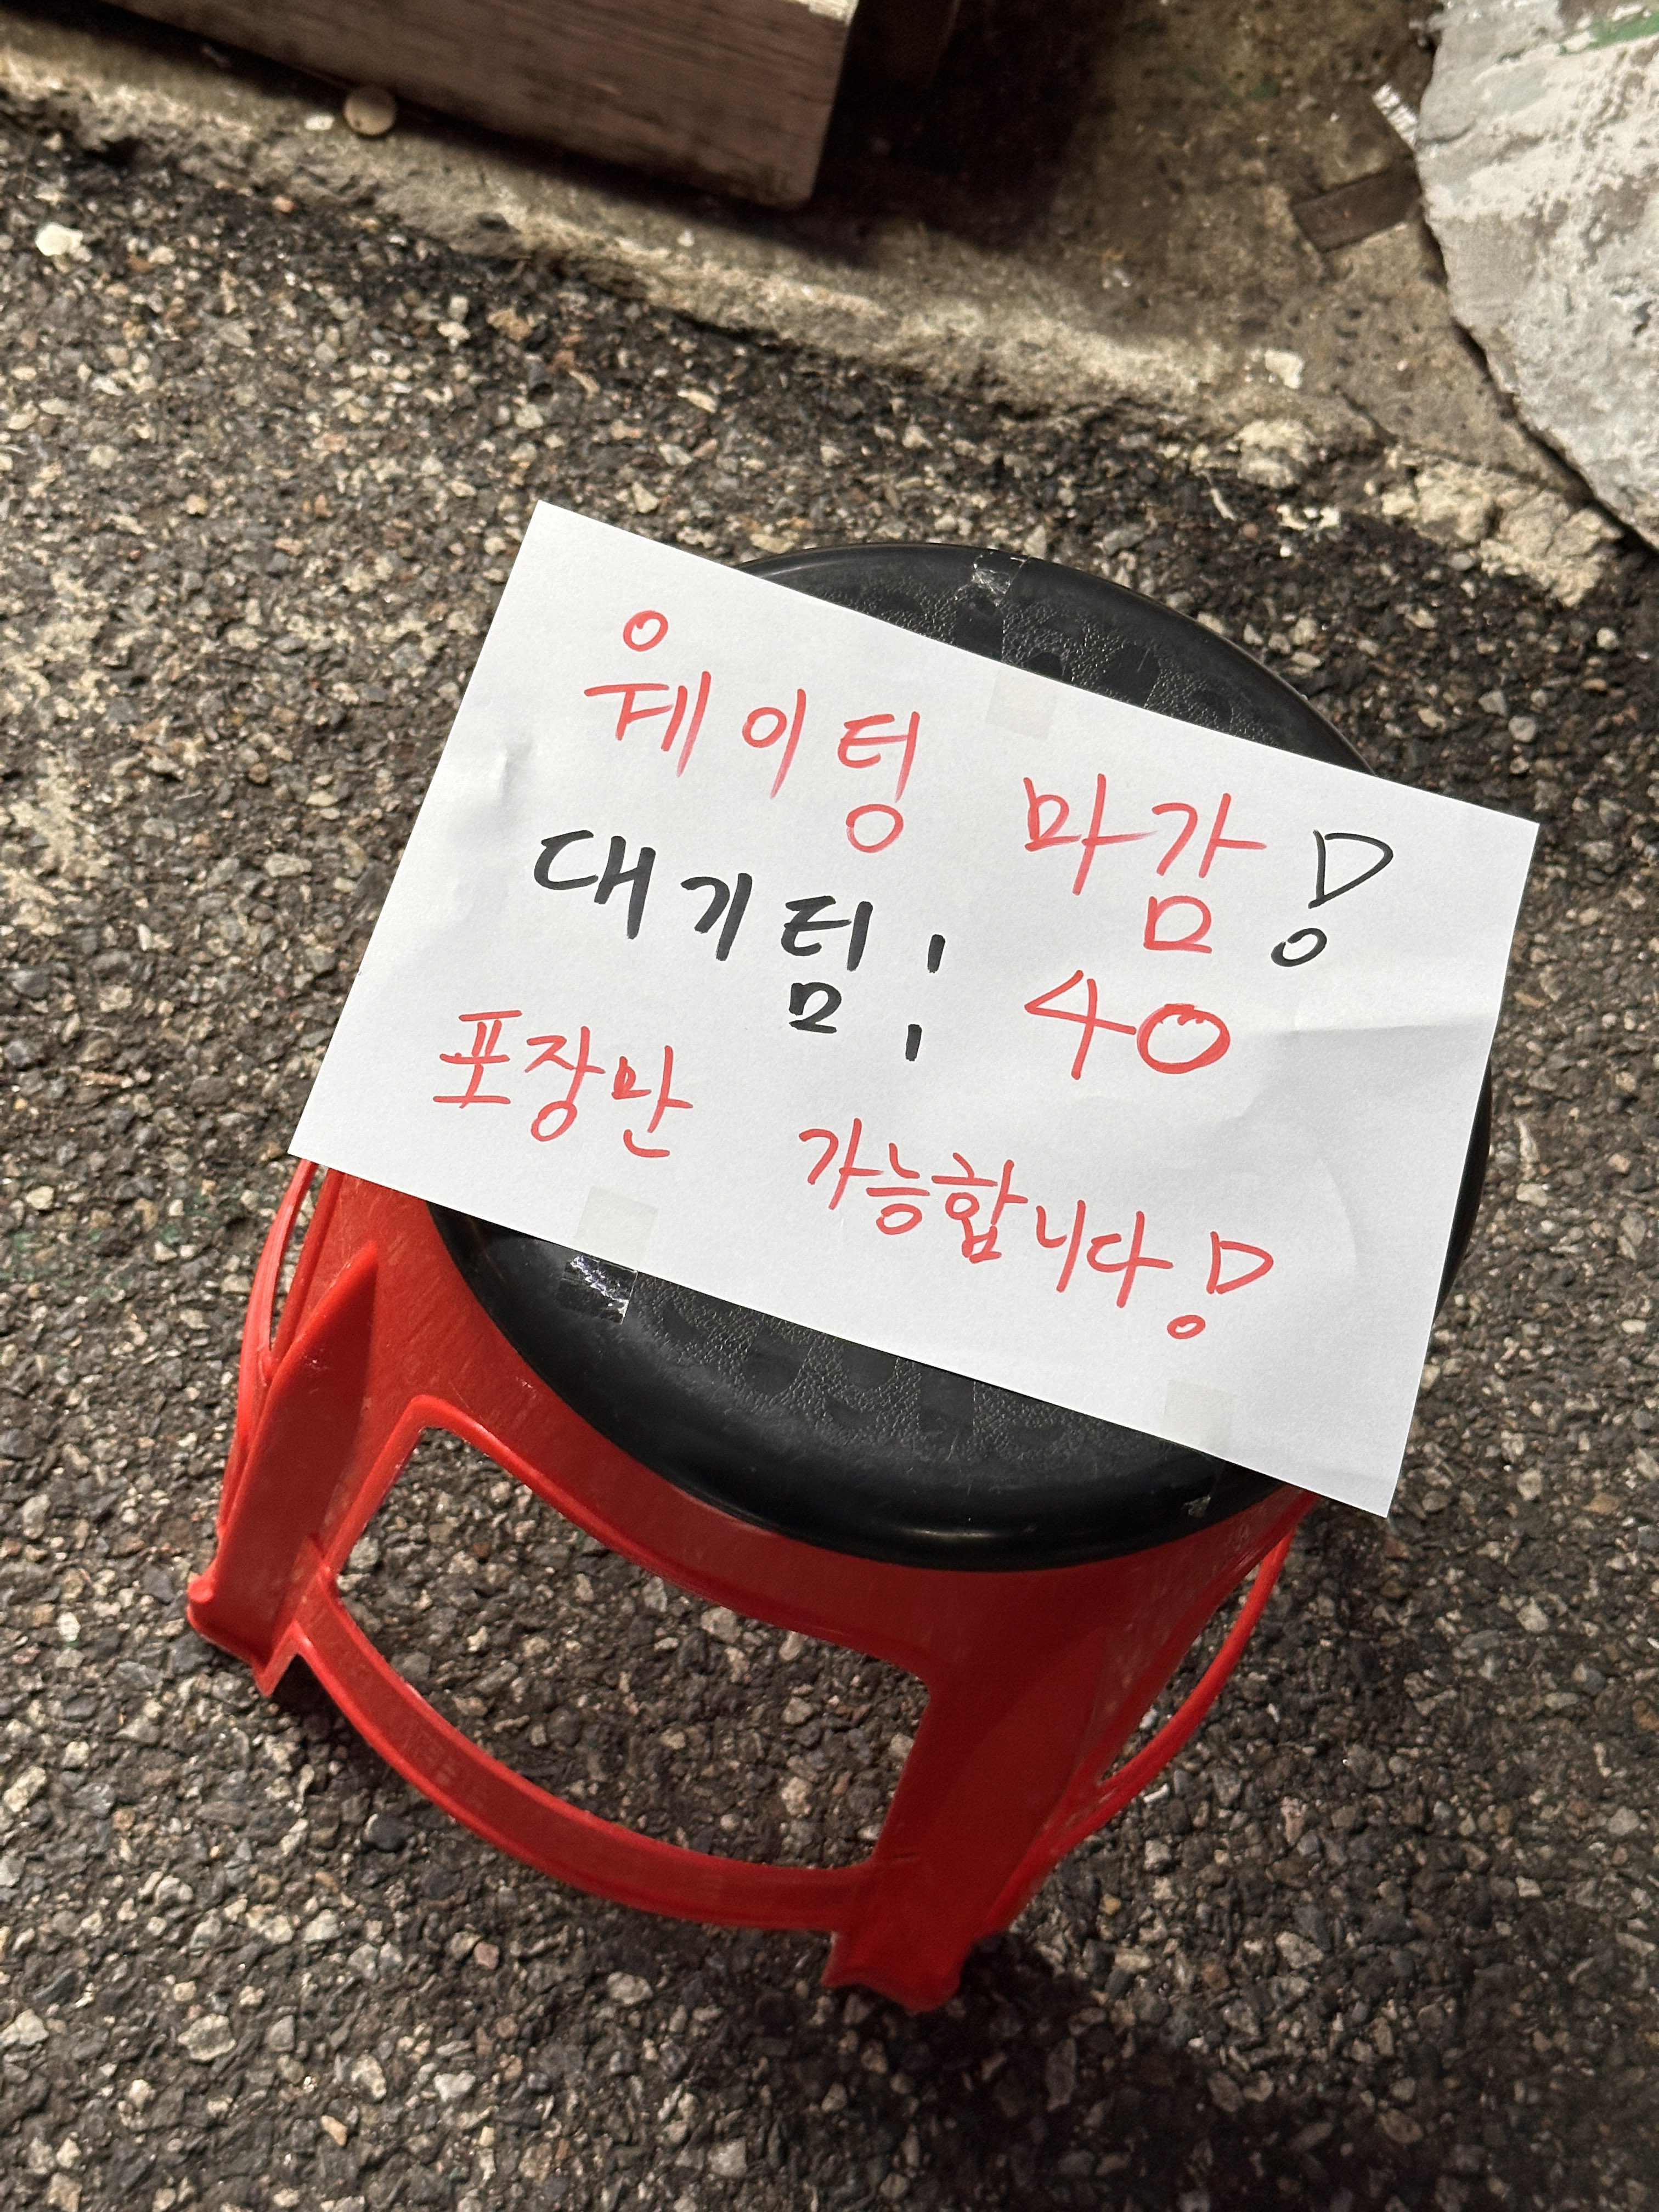 웨이팅 마감!
대기팀: 40
포장만 가능합니다!